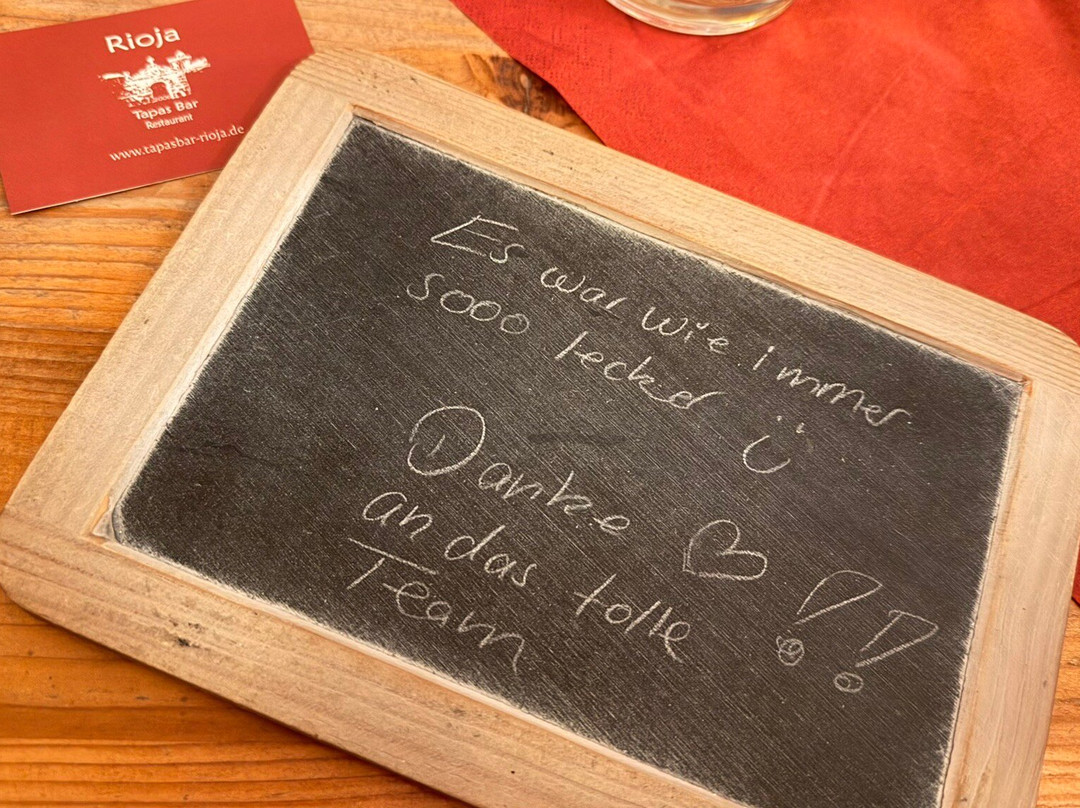 Rioja
Tapas Bar
Restaurant
www.tapasbar-rioja.de
Es war wie immer
sooo lecker
Danke
an das tolle !!
Team